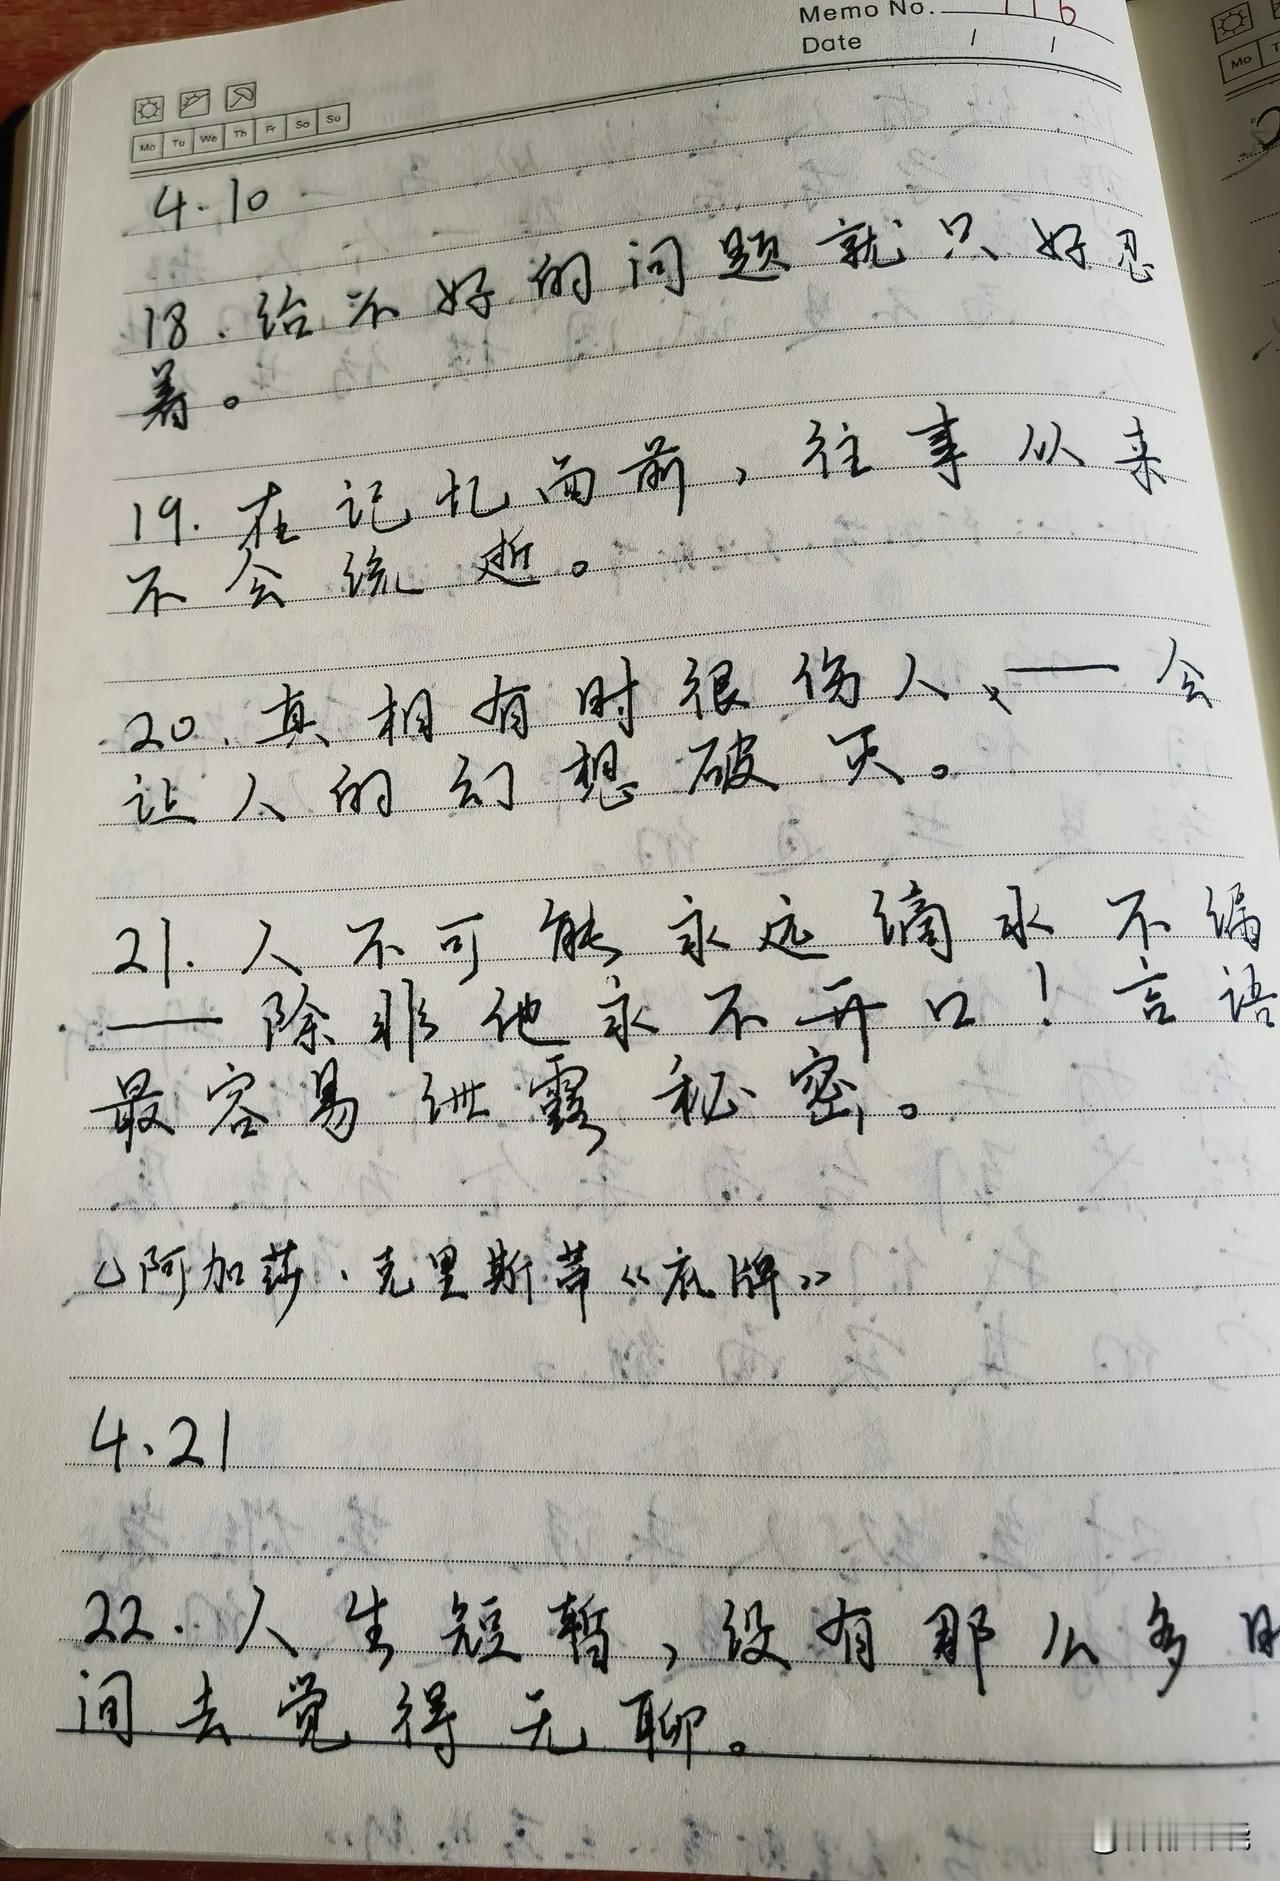 Memo No. 116
Date / /
Mo Tu We Th Fr Sa Su
Mo
4.10
18.给不好的问题就只好忍
着。
19.在记忆面前,往事从来
不会流逝。
20.真相有时很伤人、——会
让人的幻想破灭。
21.人不可能永远滴水不漏
——除非他永不开口!言语
最容易泄露秘密。
阿加莎·克里斯蒂《底牌》
4.21
22.人生短暂,没有那么多时
间去觉得无聊。